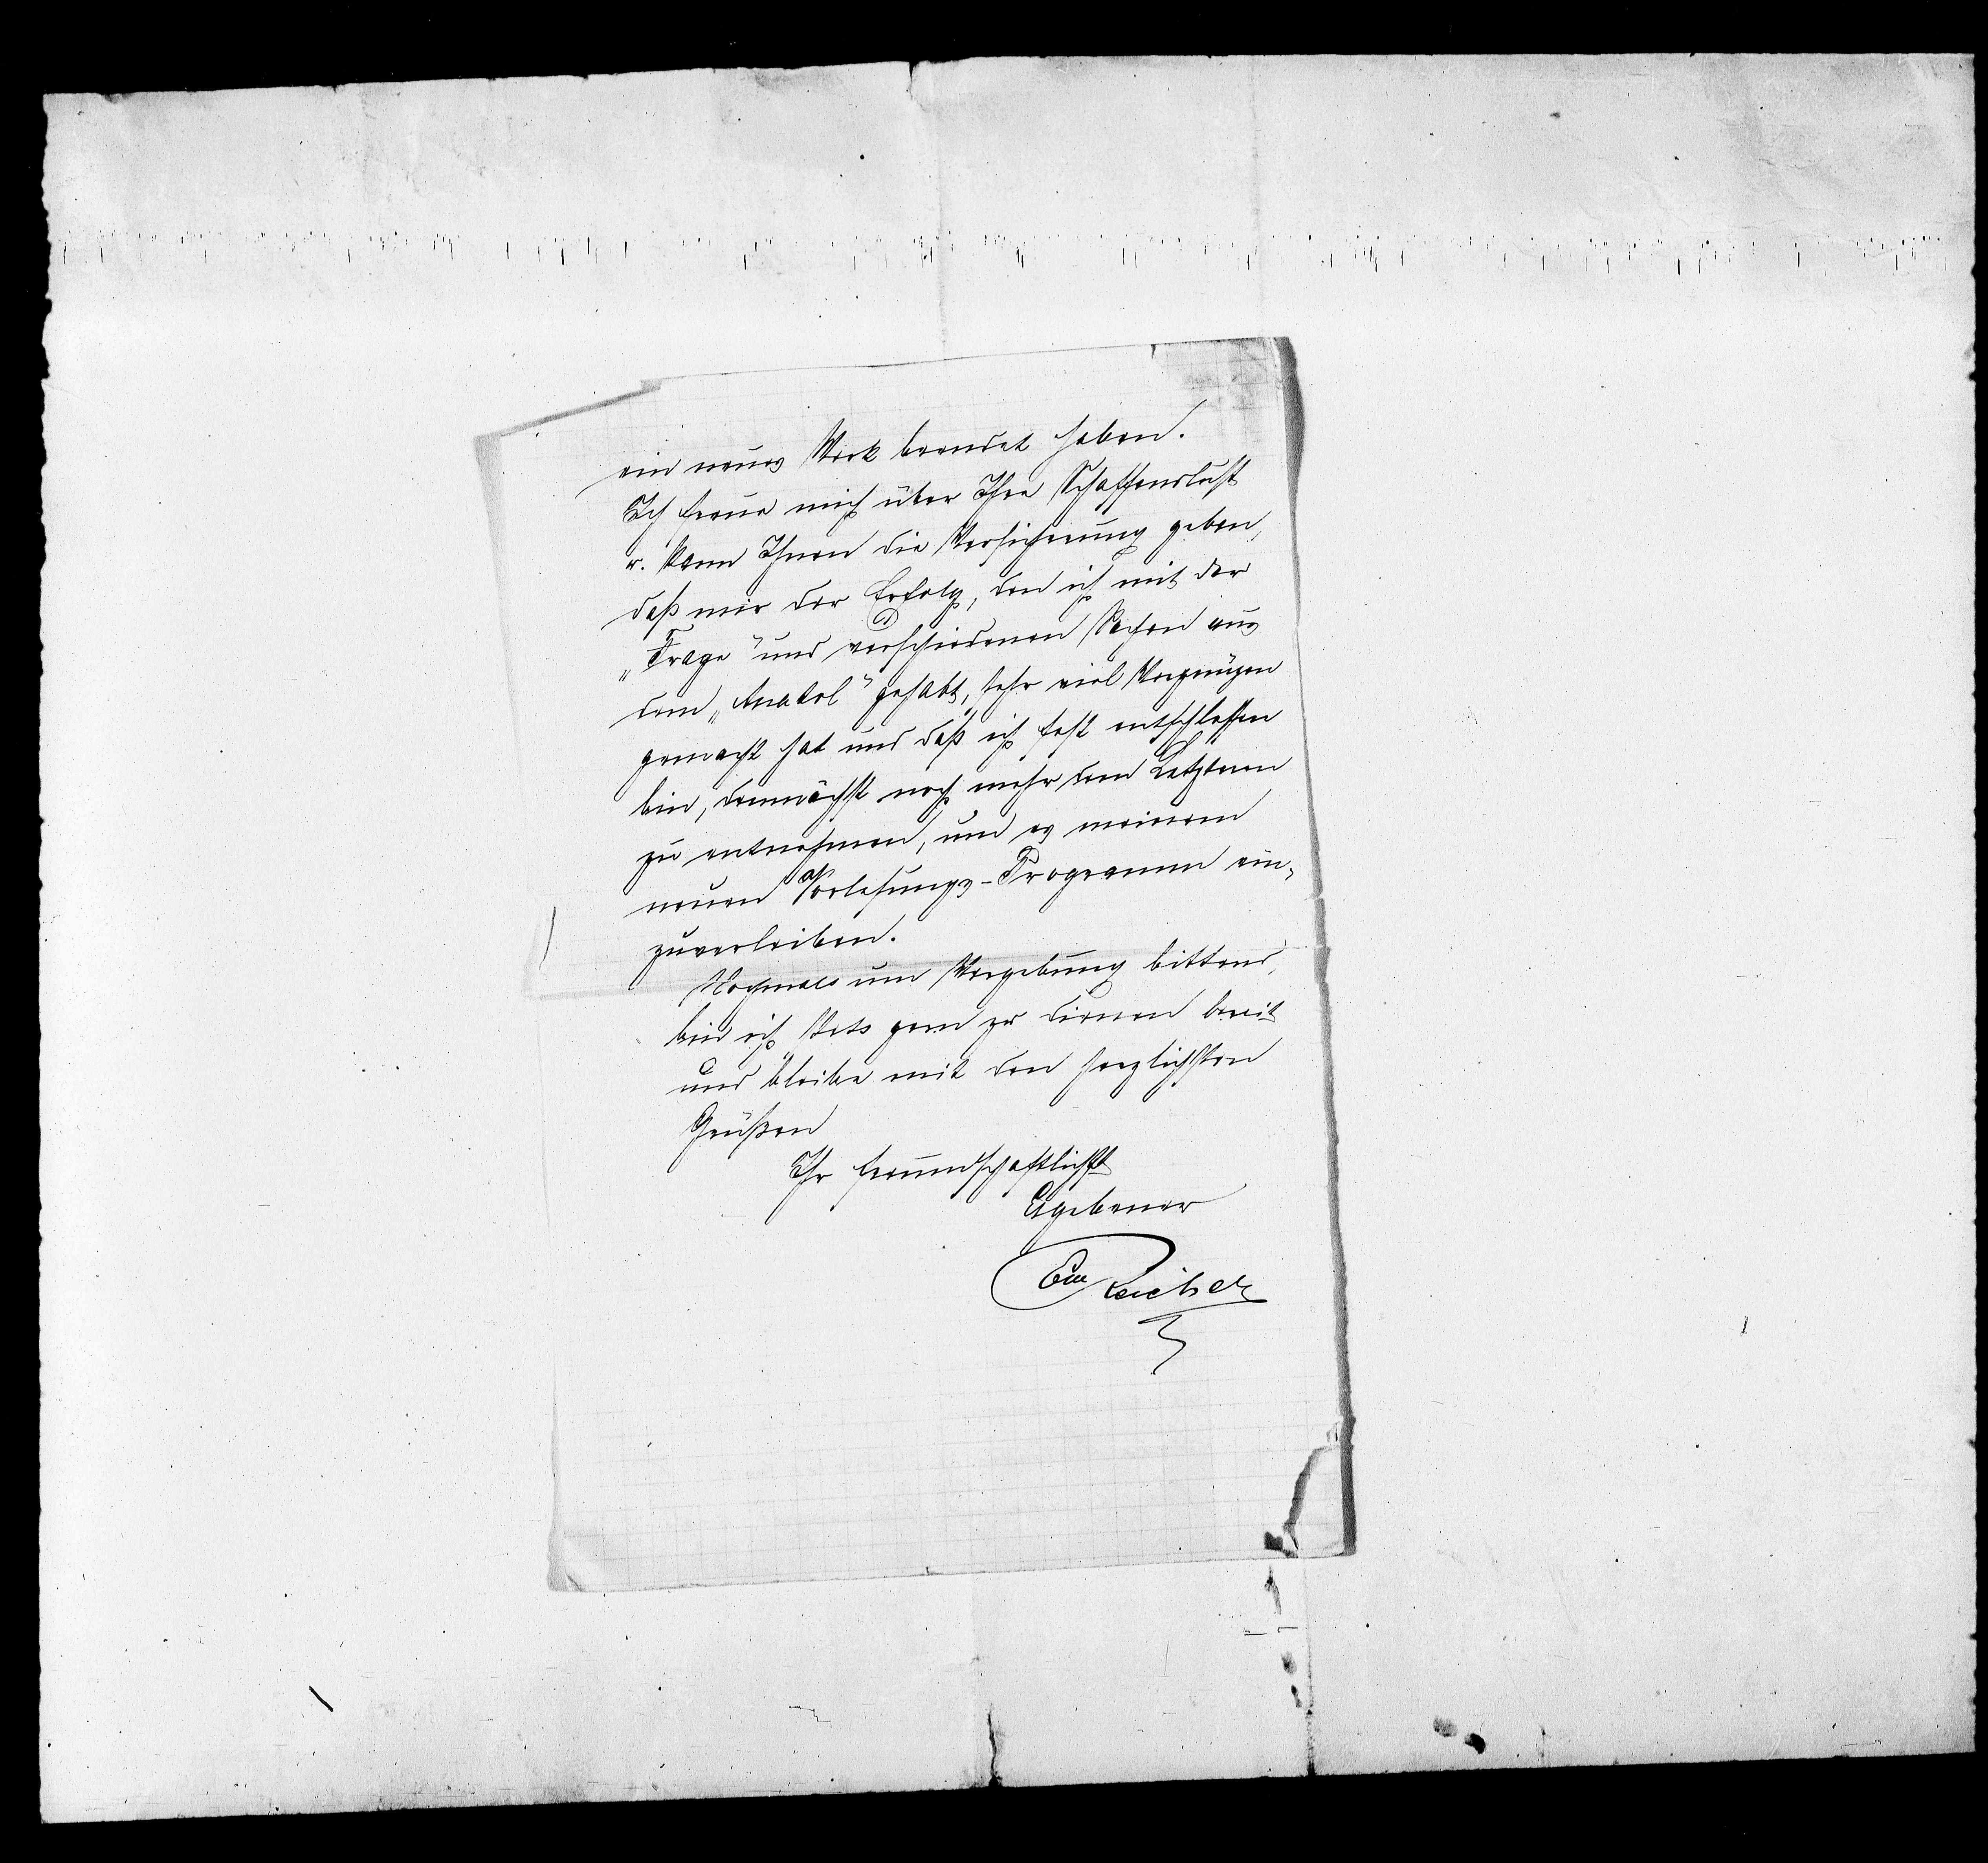 ein neues Werk beendet haben.
Ich freue mich über Ihre Schaffenslust
u. kann Ihnen die Versicherung geben,
daß mir der Erfolg, den ich mit der
„Frage“ und verschiedenen Sachen aus
dem „Anatol“ gehabt, sehr viel Vergnügen
gemacht hat und daß ich fest entschlossen
bin, demnächst noch mehr dem Letzteren
zu entnehmen, um es meinem
neuen Vorlesungs-Programm ein-
zuverleiben.
Nochmals um Vergebung bittend,
bin ich stets gern zu dienen bereit
und bleibe mit den herzlichsten
Grüßen
Ihr freundschaftlichst
Ergebener
Em Reicher